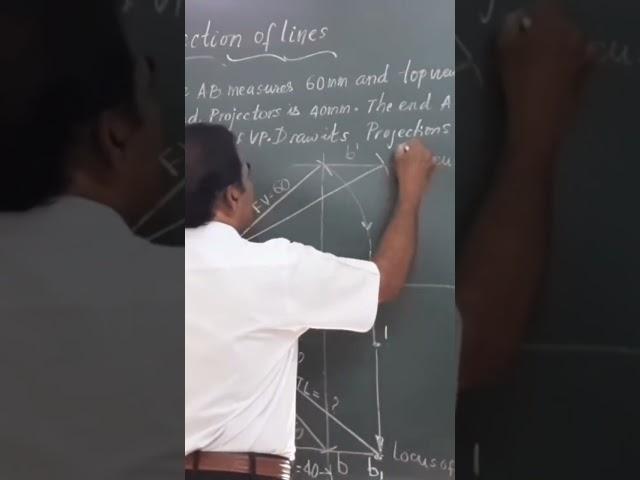 ction of lines
AB measures 60mm and topview
d. Projectors is 40mm. The end A
VP. Draw its Projections
b'
FV=60
1
TL= ?
=40
b
b₁
Locus of